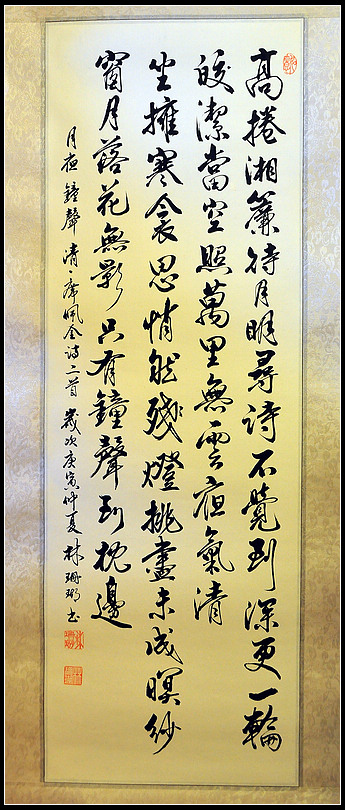 高捲湘簾待月明尋詩不覺到深更一輪
皎潔當空照萬里無雲夜氣清
坐擁寒衾思悄然殘燈挑盡未成瞑紗
窗月落花無影只有鐘聲到枕邊
月夜 鐘聲 清、席佩金詩二首 歲次庚寅仲夏 林珊書